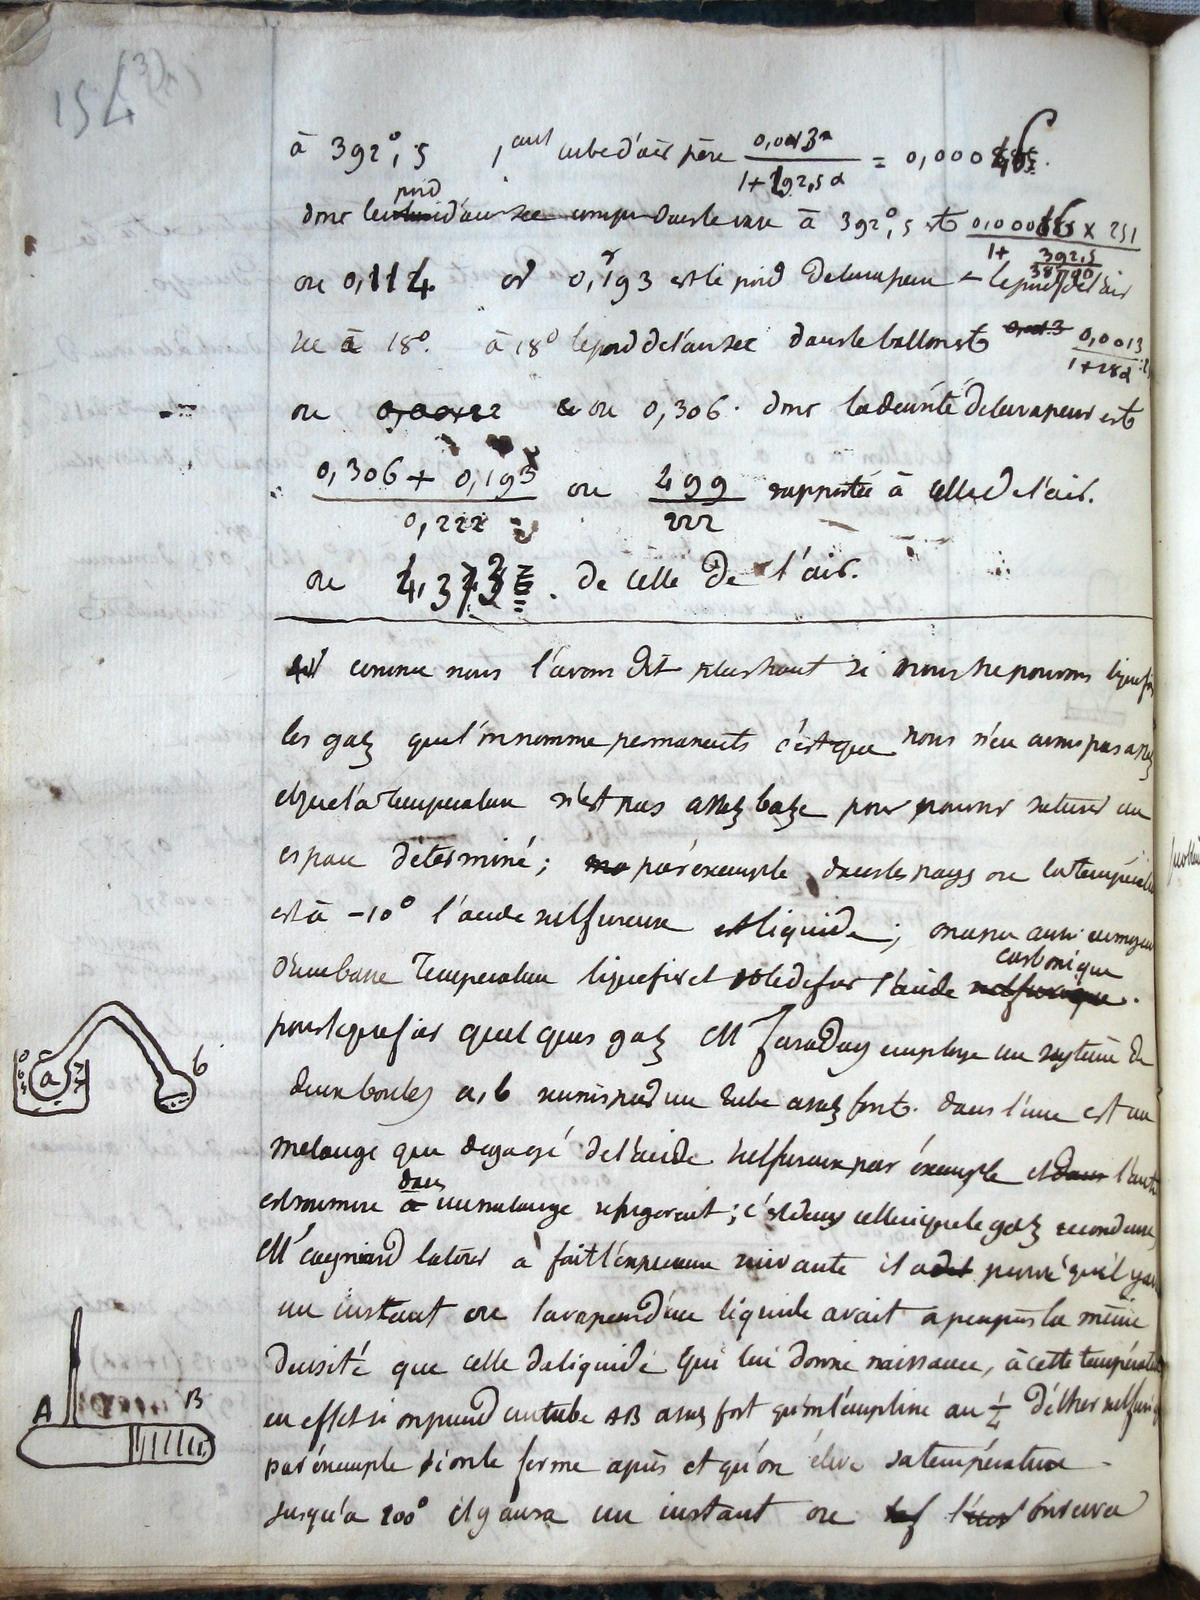 154
à 392°,5 1 cent cube d'air pèse 0,0013 / 1+392,5α = 0,000
donc le poid d'air sec compri dans le vase à 392°,5 est × 251 / 1+
ou 0,114 or 0,193 est le poid de la vapeur – le poid de l'air
sec à 18°. à 18° le poid de l'air sec dans le ballon est 0,0013 / 1+18α
ou 0,00122 ou 0,306. donc la densité de la vapeur est
0,306 + 0,193 / 0,222 ou 499 / 222 rapportée à celle de l'air.
ou de celle de l'air.
comme nous l'avons dit plus haut si nous ne pouvons liquefier
les gaz que l'on nomme permanents c'est que nous n'en avons pas assez
et que la temperature n'est pas assez basse pour pouvoir saturer un
espace déterminé; par éxemple dans les pays ou la température
est à -10° l'acide sulfureux est liquide; on a pu aussi au moyen
d'une basse temperature liquefier et solidefier l'acide sulfurique carbonique.
pour liquefier quelques gaz Mr Faraday employe un système de
deux boules a, b reunis par un tube assez fort. dans l'une est un
melange qui dégage de l'acide sulfureux par éxemple et dans l'autre
est soumise à dans un melange refrigerent; c'est dans celle ci que le gaz se condense
Mr Cagniard latour à fait l'experience suivante il a prouvé qu'il y a
un instant ou la vapeur d'un liquide avait a peu près la même
densité que celle du liquide qui lui donne naissance, à cette température
en effet si on prend un tube AB assez fort qu'on l'emplisse au 1/4 d'éther sulfurique
par éxemple si on le ferme après et qu'on élève sa température
jusqu'a 200° il y aura un instant ou l'on observera
a
b
A
B